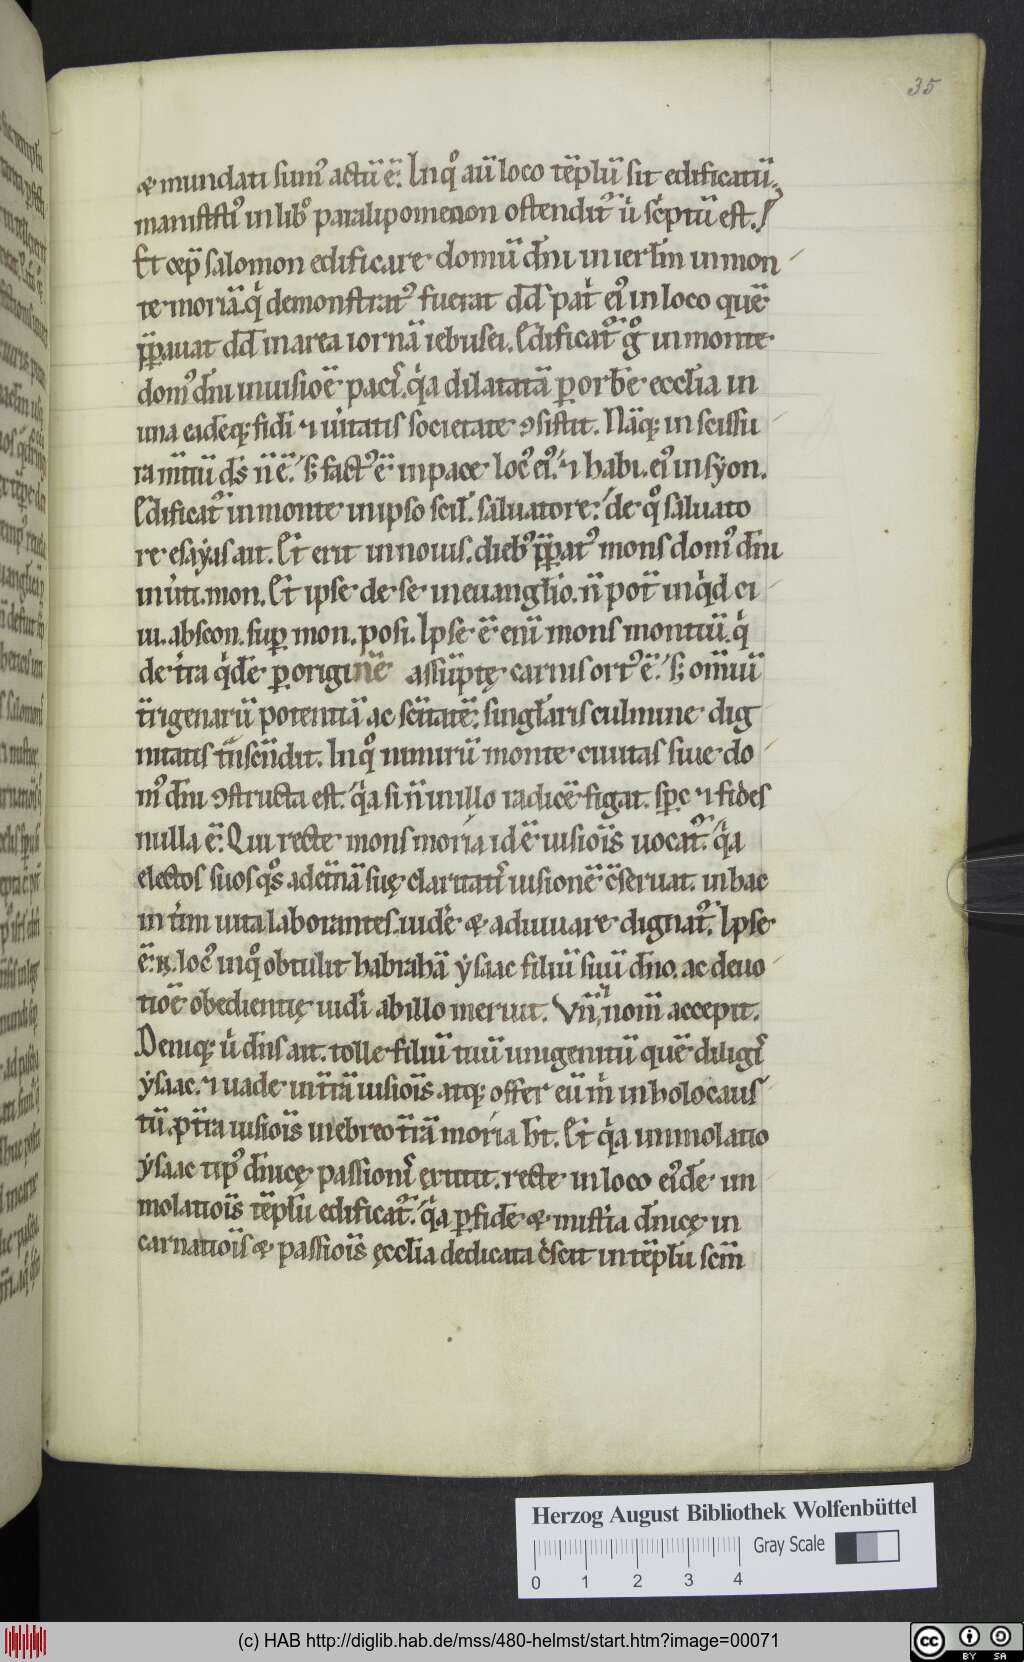 35
& mundati sumꝰ actū ē. In qͦ aū loco tēplū sit edificatū.
manifestiꝰ in libͦ paralipomenon ostendit᷑ ů sc̄ptū est.
Et cep̄ salomon edificare domū dn̄i in ierlm̄ in mon
te moria. qͥ demonstratꝰ fuerat dd̄ patͥ eiꝰ in loco quē
p̄parauat dd̄ in area iornā iebusei. Edificat᷑ gͦ in monte
domꝰ dn̄i in uisiōe pacis. qͥa dilatata p orbē eccl̄ia in
una eadēq; fidi ⁊ uͥtatis societate ꝯsistit. Nāq; in scissu
ra mītiū dꝰs n̄ ē. s; factꝰ ē in pace locꝰ eiꝰ. ⁊ habi. eiꝰ in syon.
Edificat᷑ in monte in ipso scil. saluatore. de qͦ saluato
re esayas ait. Et erit in nouis. diebꝰ p̄paratꝰ mons domꝰ dn̄i
in uͥti. mon. Et ipse de se in euangl̄io. n̄ pot̄ inqͥd ci
ui. abscon. sup mon. posi. Ipse ē enī mons montiū. qͥ
de tͥra qͥdē p originē assūptę carnis ortꝰ ē. s; omniū
tͥrigenarū potentiā ac scītatē singl̄aris culmine dig
nitatis tͣnscēdit. In qͦ nimirū monte ciuitas siue do
mꝰ dn̄i ꝯstructa est. qͥa si n̄ in illo radicē figat. spes ⁊ fides
nulla ē. Qui recte mons moria id ē uisiois uocat᷑. qͥa
electos suos qͦs ad etnā suę claritatis uisionē ꝯseruat. in hac
intͥm uita laborantes. uidē & adiuuare dignat᷑. Ipse
ē. n. locꝰ in qͦ obtulit habrahā ysaac filiū suū dn̄o. ac deuo
tiōe obedientię uidi ab illo meruit. Vn̄ ⁊ nom̄ accepit.
Deniq; ů dn̄s ait. tolle filiū tuū unigenitū quē diligis
ysaac. ⁊ uade in tͥrā uisiois. atq; offer eū mͥ in holocaus
tū. p tͥra uisiois in ebreo tͥrā moria h̄t. Et qͥa immolatio
ysaac tipꝰ dn̄icę passionis extitit. recte in loco eiꝰdē im
molatiois tēplū edificat᷑. qͥa p fidē & mist̄ia dn̄icę in
carnatiois & passiois ęccl̄ia dedicata cͥscit in tēplū scm̄
Herzog August Bibliothek Wolfenbüttel
Gray Scale
0 1 2 3 4
(c) HAB http://diglib.hab.de/mss/480-helmst/start.htm?image=00071
cc BY SA